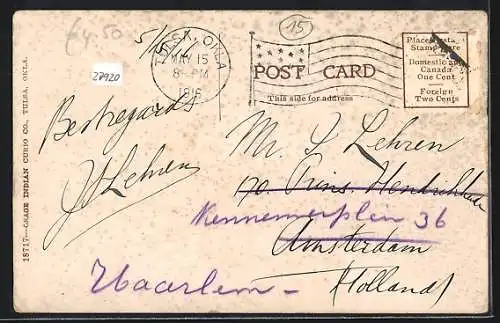 €4.50
15
TULSA, OKLA.
MAY 15
8 - PM
1916
27920
POST CARD
This side for address
Stamp Here
Domestic and
Canada
One Cent
Foreign
Two Cents
Best regards
J Lehren
Mr. J Lehren
170. Prins. Hendrikkade
Kennemerplein 36
Amsterdam
Haarlem -
Holland
18717—GRADE INDIAN CURIO CO., TULSA, OKLA.